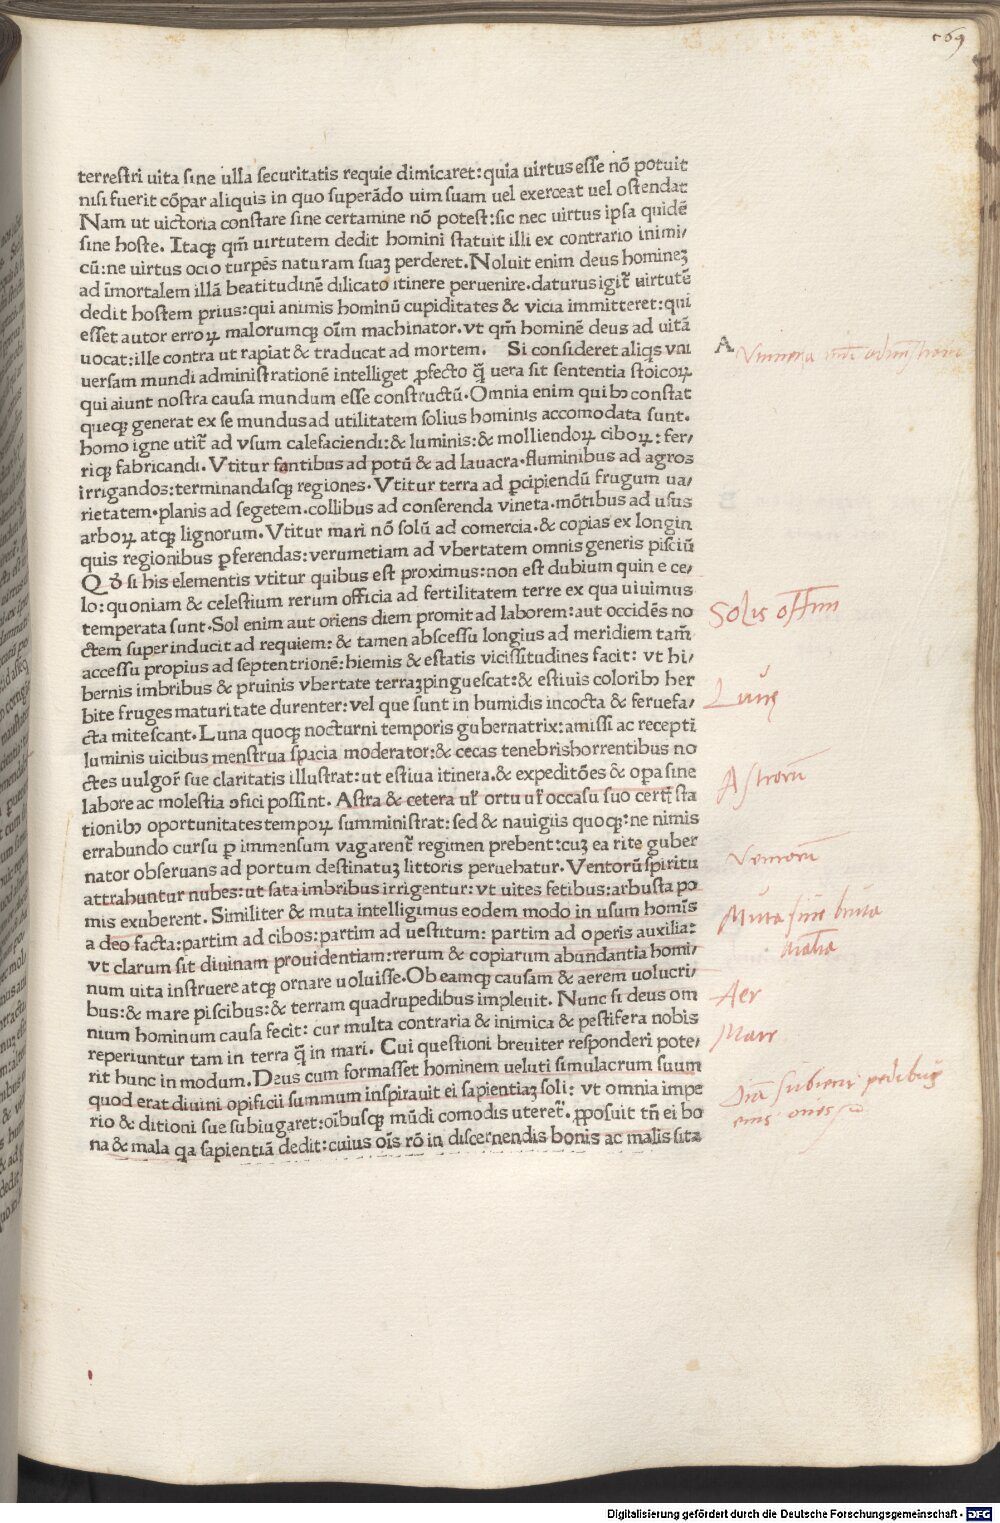 terrestri uita sine ulla securitatis requie dimicaret: quia uirtus esse nõ potuit
nisi fuerit cõpar aliquis in quo superãdo uim suam uel exerceat uel ostendat
Nam ut uictoria constare sine certamine nõ potest: sic nec uirtus ipsa quidẽ
sine hoste. Itaqꝫ qm̃ uirtutem dedit homini statuit illi ex contrario inimi/
cũ: ne uirtus ocio turpẽs naturam suaꝫ perderet. Noluit enim deus homineꝫ
ad ĩmortalem illã beatitudinẽ dilicato itinere peruenire. daturus igit̃ uirtutẽ
dedit hostem prius: qui animis hominũ cupiditates & vicia immitteret: qui
esset autor erroꝝ malorumqꝫ oĩm machinator. vt qm̃ hominẽ deus ad uitã
uocat: ille contra ut rapiat & traducat ad mortem. Si consideret aliqs vni
uersam mundi administrationẽ intelliget ꝓfecto q̃ uera sit sententia stoicoꝝ
qui aiunt nostra causa mundum esse constructũ. Omnia enim quibꝰ constat
queqꝫ generat ex se mundus ad utilitatem solius hominis accomodata sunt.
homo igne utit̃ ad vsum calefaciendi: & luminis: & molliendoꝝ ciboꝝ: fer/
riqꝫ fabricandi. Vtitur fontibus ad potũ & ad lauacra. fluminibus ad agros
irrigandos: terminandasqꝫ regiones. Vtitur terra ad ꝑcipiendũ frugum ua/
rietatem. planis ad segetem. collibus ad conserenda vineta. mõtibus ad usus
arboꝝ atqꝫ lignorum. Vtitur mari nõ solũ ad comercia. & copias ex longin
quis regionibus ꝑferendas: verumetiam ad vbertatem omnis generis pisciũ
Qđ si his elementis vtitur quibus est proximus: non est dubium quin e ce/
lo: quoniam & celestium rerum officia ad fertilitatem terre ex qua uiuimus
temperata sunt. Sol enim aut oriens diem promit ad laborem: aut occidẽs no
ctem superinducit ad requiem: & tamen abscessu longius ad meridiem tam̃
accessu propius ad septentrionẽ: hiemis & estatis vicissitudines facit: vt hi/
bernis imbribus & pruinis vbertate terraꝫ pinguescat: & estiuis coloribꝰ her
bite fruges maturitate durenter: vel que sunt in humidis incocta & feruefa/
cta mitescant. Luna quoqꝫ nocturni temporis gubernatrix: amissi ac recepti
luminis uicibus menstrua spacia moderator: & cecas tenebris horrentibus no
ctes uulgor̃ sue claritatis illustrat: ut estiua itinera. & expeditões & oꝑa sine
labore ac molestia ɔfici possint. Astra & cetera ul̃ ortu ul̃ occasu suo certĩ sta
tionibꝰ oportunitates tempoꝝ sumministrat: sed & nauigiis quoqꝫ: ne nimis
errabundo cursu ꝑ immensum vagarent̃ regimen prebent: cuꝫ ea rite guber
nator obseruans ad portum destinatuꝫ littoris peruehatur. Ventorũ spiritu
attrahuntur nubes: ut sata imbribus irrigentur: vt uites fetibus: arbusta po
mis exuberent. Similiter & muta intelligimus eodem modo in usum homĩs
a deo facta: partim ad cibos: partim ad uestitum: partim ad operis auxilia:
vt clarum sit diuinam prouidentiam: rerum & copiarum abundantia homi/
num uita instruere atqꝫ ornare uoluisse. Ob eamqꝫ causam & aerem uolucri/
bus: & mare piscibus: & terram quadrupedibus impleuit. Nunc si deus om
nium hominum causa fecit: cur multa contraria & inimica & pestifera nobis
reperiuntur tam in terra q̃ in mari. Cui questioni breuiter responderi pote/
rit hunc in modum. Deus cum formasset hominem ueluti simulacrum suum
quod erat diuini opificii summum inspirauit ei sapientiaꝫ soli: vt omnia impe
rio & ditioni sue subiugaret: oĩbusqꝫ mũdi comodis uteret̃. ꝓposuit tñ ei bo
na & mala qa sapientiã dedit: cuius oĩs rõ in discernendis bonis ac malis sita
A
Solis offm
Lune
Astrorũ
Ventorũ
Muta sine bruta
aĩalia
Aer
Mare
Oĩa subieci pedibus
eius oues
Digitalisierung gefördert durch die Deutsche Forschungsgemeinschaft - DFG